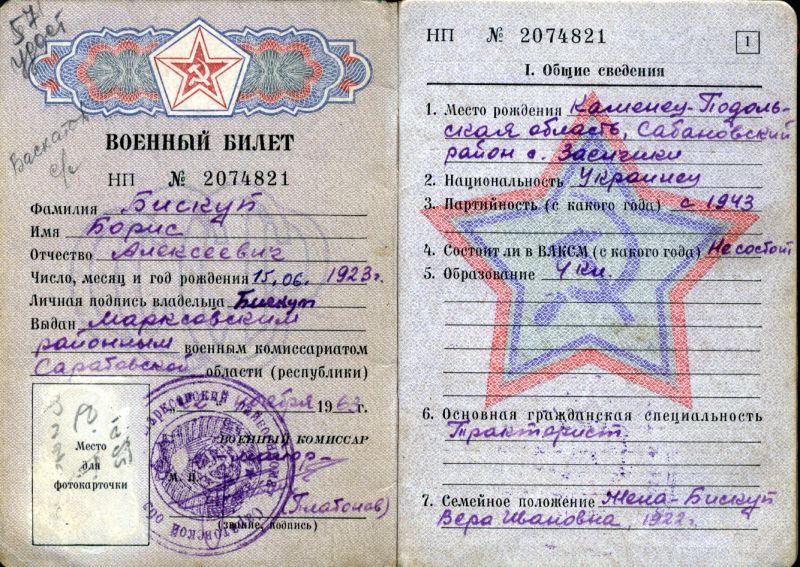 57
ВОЕННЫЙ БИЛЕТ
НП № 2074821
Фамилия Бискуп
Имя Борис
Отчество Алексеевич
Число, месяц и год рождения 15.06. 1923 г.
Личная подпись владельца Бискуп
Выдан Марксовским
районным военным комиссариатом
Саратовской области (республики)
ноября 1963 г.
ВОЕННЫЙ КОМИССАР
майор
М. П.
(Платонов)
(звание, подпись)
Место
для
фотокарточки
НП № 2074821
1
I. Общие сведения
1. Место рождения Каменец-Подоль-
ская область, Сабановский
район с.
2. Национальность Украинец
3. Партийность (с какого года) с 1943
4. Состоит ли в ВЛКСМ (с какого года) Не состоит
5. Образование 4 кл.
6. Основная гражданская специальность
Тракторист
7. Семейное положение Жена-Бискуп
Вера Ивановна, 1922 г.